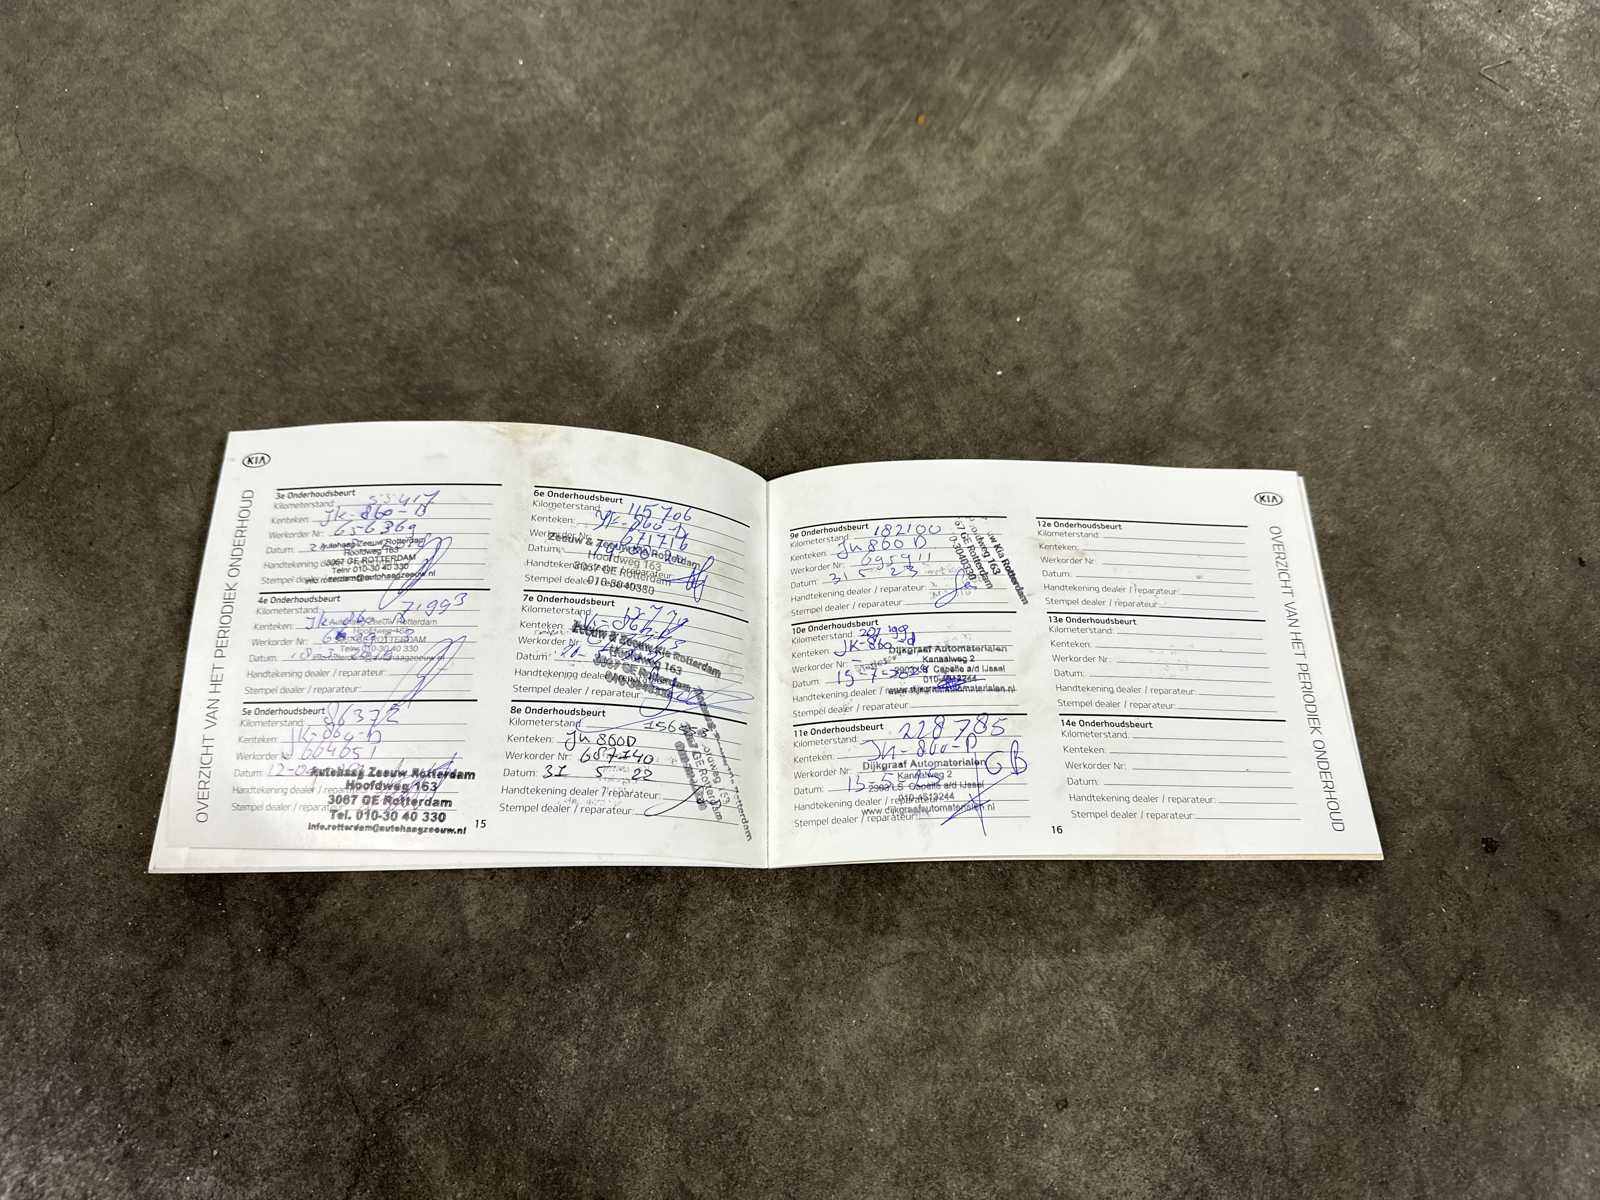 KIA
OVERZICHT VAN HET PERIODIEK ONDERHOUD
3e Onderhoudsbeurt
Kilometerstand: 55417
Kenteken: JK-860-D
Werkorder Nr: 656369
Datum:
Autohaag Zeeuw Rotterdam
Hoofdweg 163
3067 GE ROTTERDAM
Telnr 010-30 40 330
Handtekening
Stempel dealer
4e Onderhoudsbeurt
Kilometerstand: 71993
Kenteken: JK-860-D
Werkorder Nr:
Autohaag Zeeuw Rotterdam
Hoofdweg 163
ROTTERDAM
010-30 40 330
Datum:
Handtekening dealer / reparateur:
Stempel dealer / reparateur:
5e Onderhoudsbeurt
Kilometerstand: 86372
Kenteken: JK-860-D
Werkorder Nr: 664651
Datum: 12-0
Handtekening dealer
Stempel dealer / reparat
Autohaag Zeeuw Rotterdam
Hoofdweg 163
3067 GE Rotterdam
Tel. 010-30 40 330
info.rotterdam@autohaagzeeuw.nl
15
6e Onderhoudsbeurt
Kilometerstand: 115706
Kenteken: JK-860-D
Werkorder Nr: 671716
Datum:
Zeeuw & Zeeuw Kia Rotterdam
Hoofdweg 163
3067 GE Rotterdam
010-3040330
Handtekening dealer / reparateur:
Stempel dealer
7e Onderhoudsbeurt
Kilometerstand:
Kenteken:
Werkorder Nr:
Datum:
Zeeuw & Zeeuw Kia Rotterdam
Hoofdweg 163
3067 GE Rotterdam
Handtekening dealer
Stempel dealer / reparateur:
8e Onderhoudsbeurt
Kilometerstand:
Kenteken: JK 860D
Werkorder Nr: 687140
Datum: 31 5 22
Handtekening dealer / reparateur:
Stempel dealer / reparateur:
9e Onderhoudsbeurt
Kilometerstand: 182100
Kenteken: JK 860D
Werkorder Nr: 095911
Datum: 31 5 23
Handtekening dealer / reparateur:
Stempel dealer / reparateur:
uw Kia Rotterdam
oofdweg 163
67 GE Rotterdam
0-3040330
10e Onderhoudsbeurt
Kilometerstand: 207998
Kenteken: JK-860-D
Werkorder Nr:
Datum: 15-7-
Dijkgraaf Automaterialen
Kanaalweg 2
2903 LS Capelle a/d IJssel
010-4513244
www.dijkgraafautomaterialen.nl
Handtekening dealer
Stempel dealer / reparateur:
11e Onderhoudsbeurt
Kilometerstand: 228785
Kenteken: JK-860-D
Werkorder Nr: GB
Datum: 13-5
Dijkgraaf Automaterialen
Kanaalweg 2
2903 LS Capelle a/d IJssel
010-4513244
www.dijkgraafautomaterialen.nl
Handtekening dealer / reparateur:
Stempel dealer / reparateur:
16
KIA
12e Onderhoudsbeurt
Kilometerstand:
Kenteken:
Werkorder Nr:
Datum:
Handtekening dealer / reparateur:
Stempel dealer / reparateur:
13e Onderhoudsbeurt
Kilometerstand:
Kenteken:
Werkorder Nr:
Datum:
Handtekening dealer / reparateur:
Stempel dealer / reparateur:
14e Onderhoudsbeurt
Kilometerstand:
Kenteken:
Werkorder Nr:
Datum:
Handtekening dealer / reparateur:
Stempel dealer / reparateur:
OVERZICHT VAN HET PERIODIEK ONDERHOUD